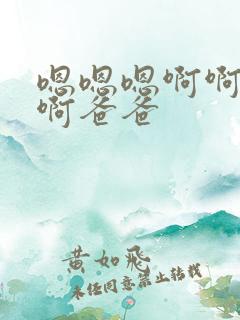 嗯嗯嗯啊啊
啊爸爸
黄如飛
未经同意禁止转载